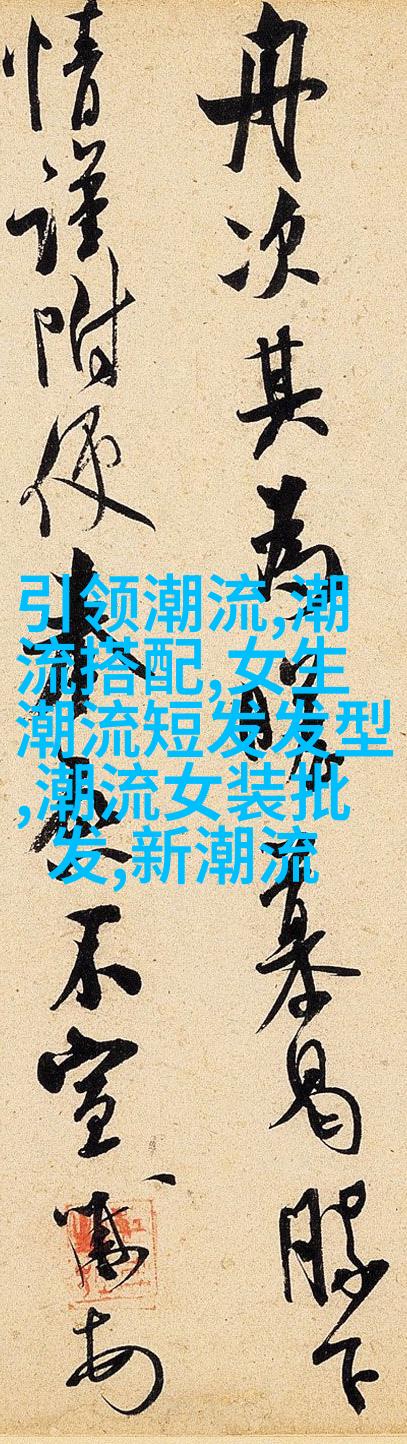 舟次其為瞻慕曷勝下
情謹附便奉啓不宣
引领潮流,潮
流搭配,女生
潮流短发发型
,潮流女装批
发,新潮流